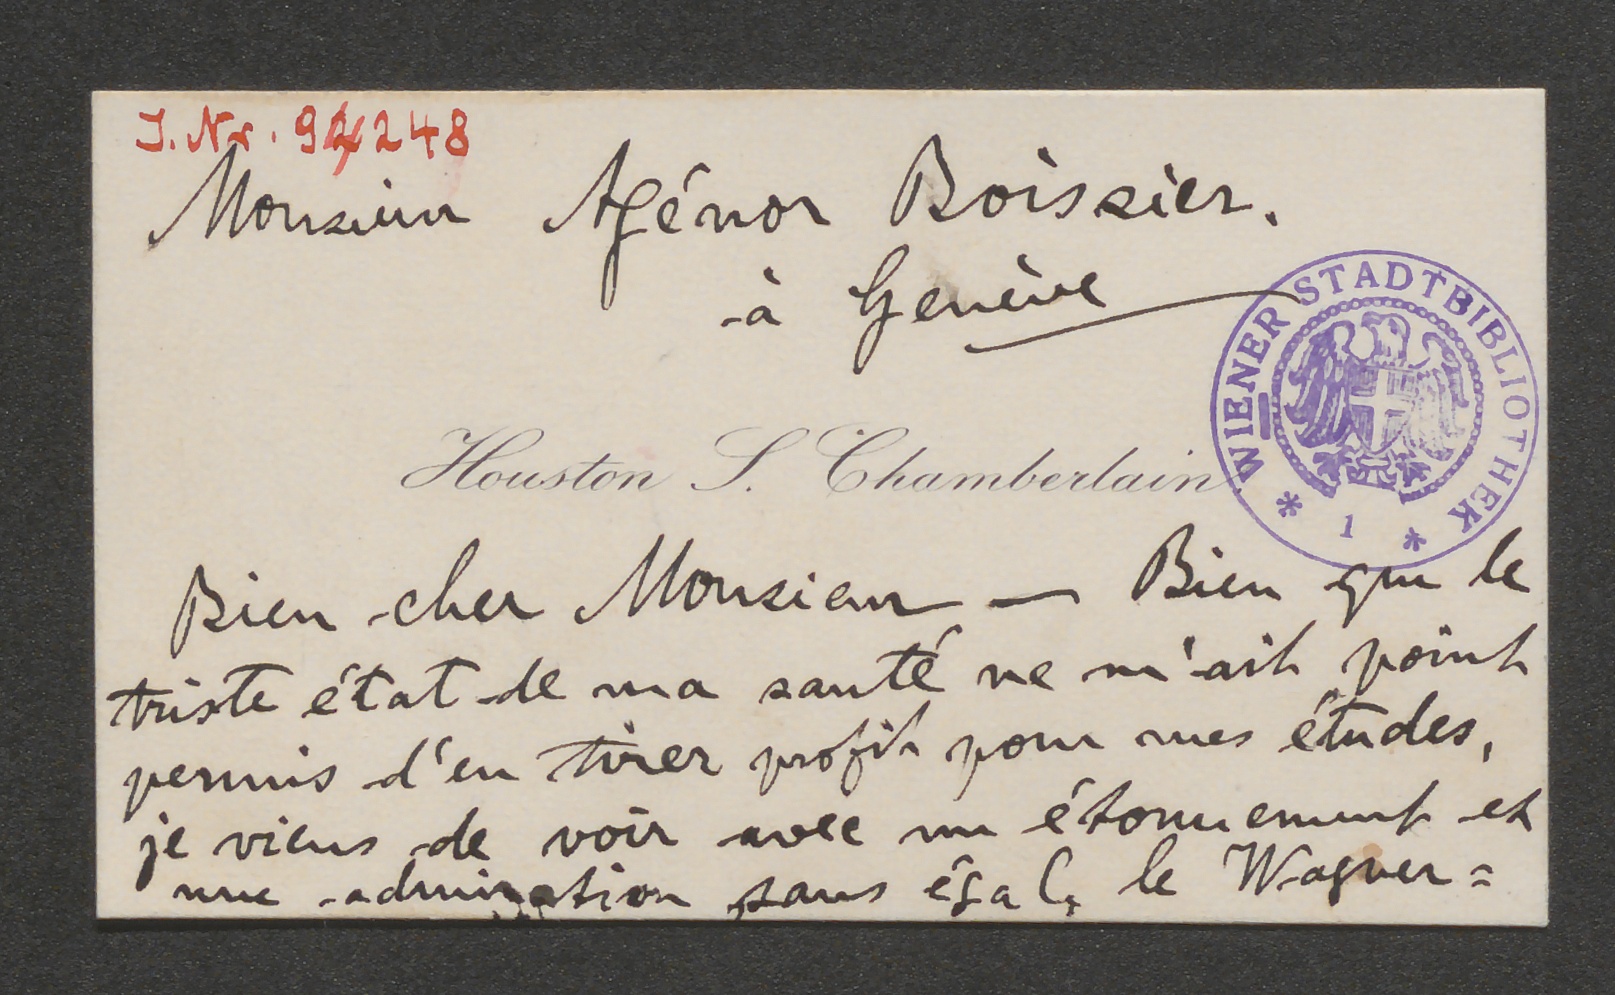 J. Nr. 94248
Monsieur Agénor Boissier.
à Genève
WIENER STADTBIBLIOTHEK
* 1 *
Houston S. Chamberlain
Bien cher Monsieur — Bien que le
triste état de ma santé ne m'ait point
permis d'en tirer profit pour mes études,
je viens de voir avec un étonnement et
une admiration sans égal, le Wagner=